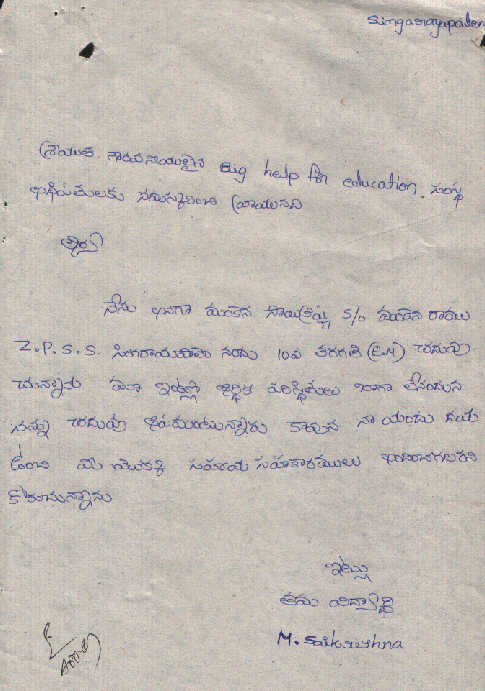 Singarayapalem
శ్రీయుత గౌరవనీయులైన Big help for education, సంస్థ
అధిపతులకు నమస్కరించి వ్రాయునది
ఆర్యా
నేను అనగా మోతేన సాయికృష్ణ S/o మోతేన రాము
Z.P.S.S. సింగరాయపాలెం నందు 10వ తరగతి (E.M) చదువు
చున్నాను మా ఇంట్లో ఆర్థిక పరిస్థితులు బాగా లేనందున
నన్ను చదువు ఆపమంటున్నారు కావున నా యందు దయ
ఉంచి మీ సహాయ సహకారములు అందించగలరని
కోరుచున్నాను
ఇట్లు
తమ విద్యార్థి
M. Saikrishna